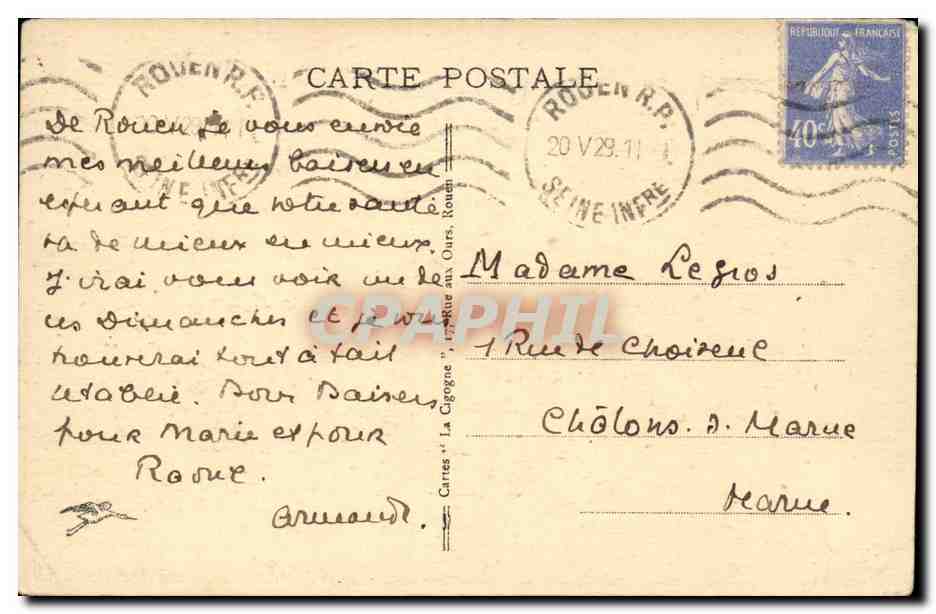 CARTE POSTALE
ROUEN R.P.
SEINE INFRE
ROUEN R.P.
20 V 29
SEINE INFRE
REPUBLIQUE FRANÇAISE
40c
POSTES
De Rouen je vous envoie
mes meilleurs baisers en
esperant que votre santé
va de mieux en mieux.
J'irai vous voir un de
ces Dimanches et je vous
trouverai tout à fait
retablie. Bons Baisers
pour Marie et pour
Raoul.
Armand.
Cartes " La Cigogne ", 177 Rue aux Ours, Rouen
Madame Legros
1 Rue de Choiseul
Châlons. s. Marne
Marne.
CPAPHIL